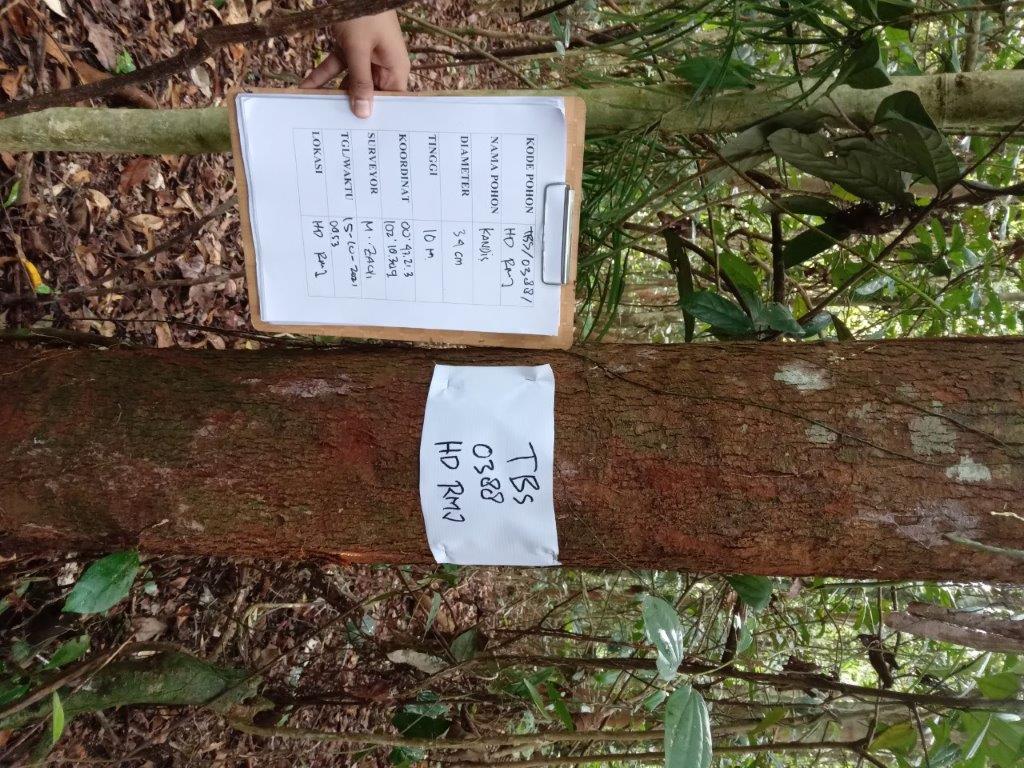 KODE POHON TBS/0388/
HD RMJ
NAMA POHON KANDIS
DIAMETER 34 cm
TINGGI 10 m
KOORDINAT
SURVEYOR M. ZAQI
TGL/WAKTU 15-10-2021
LOKASI HD RMJ
TBS
0388
HD RMJ